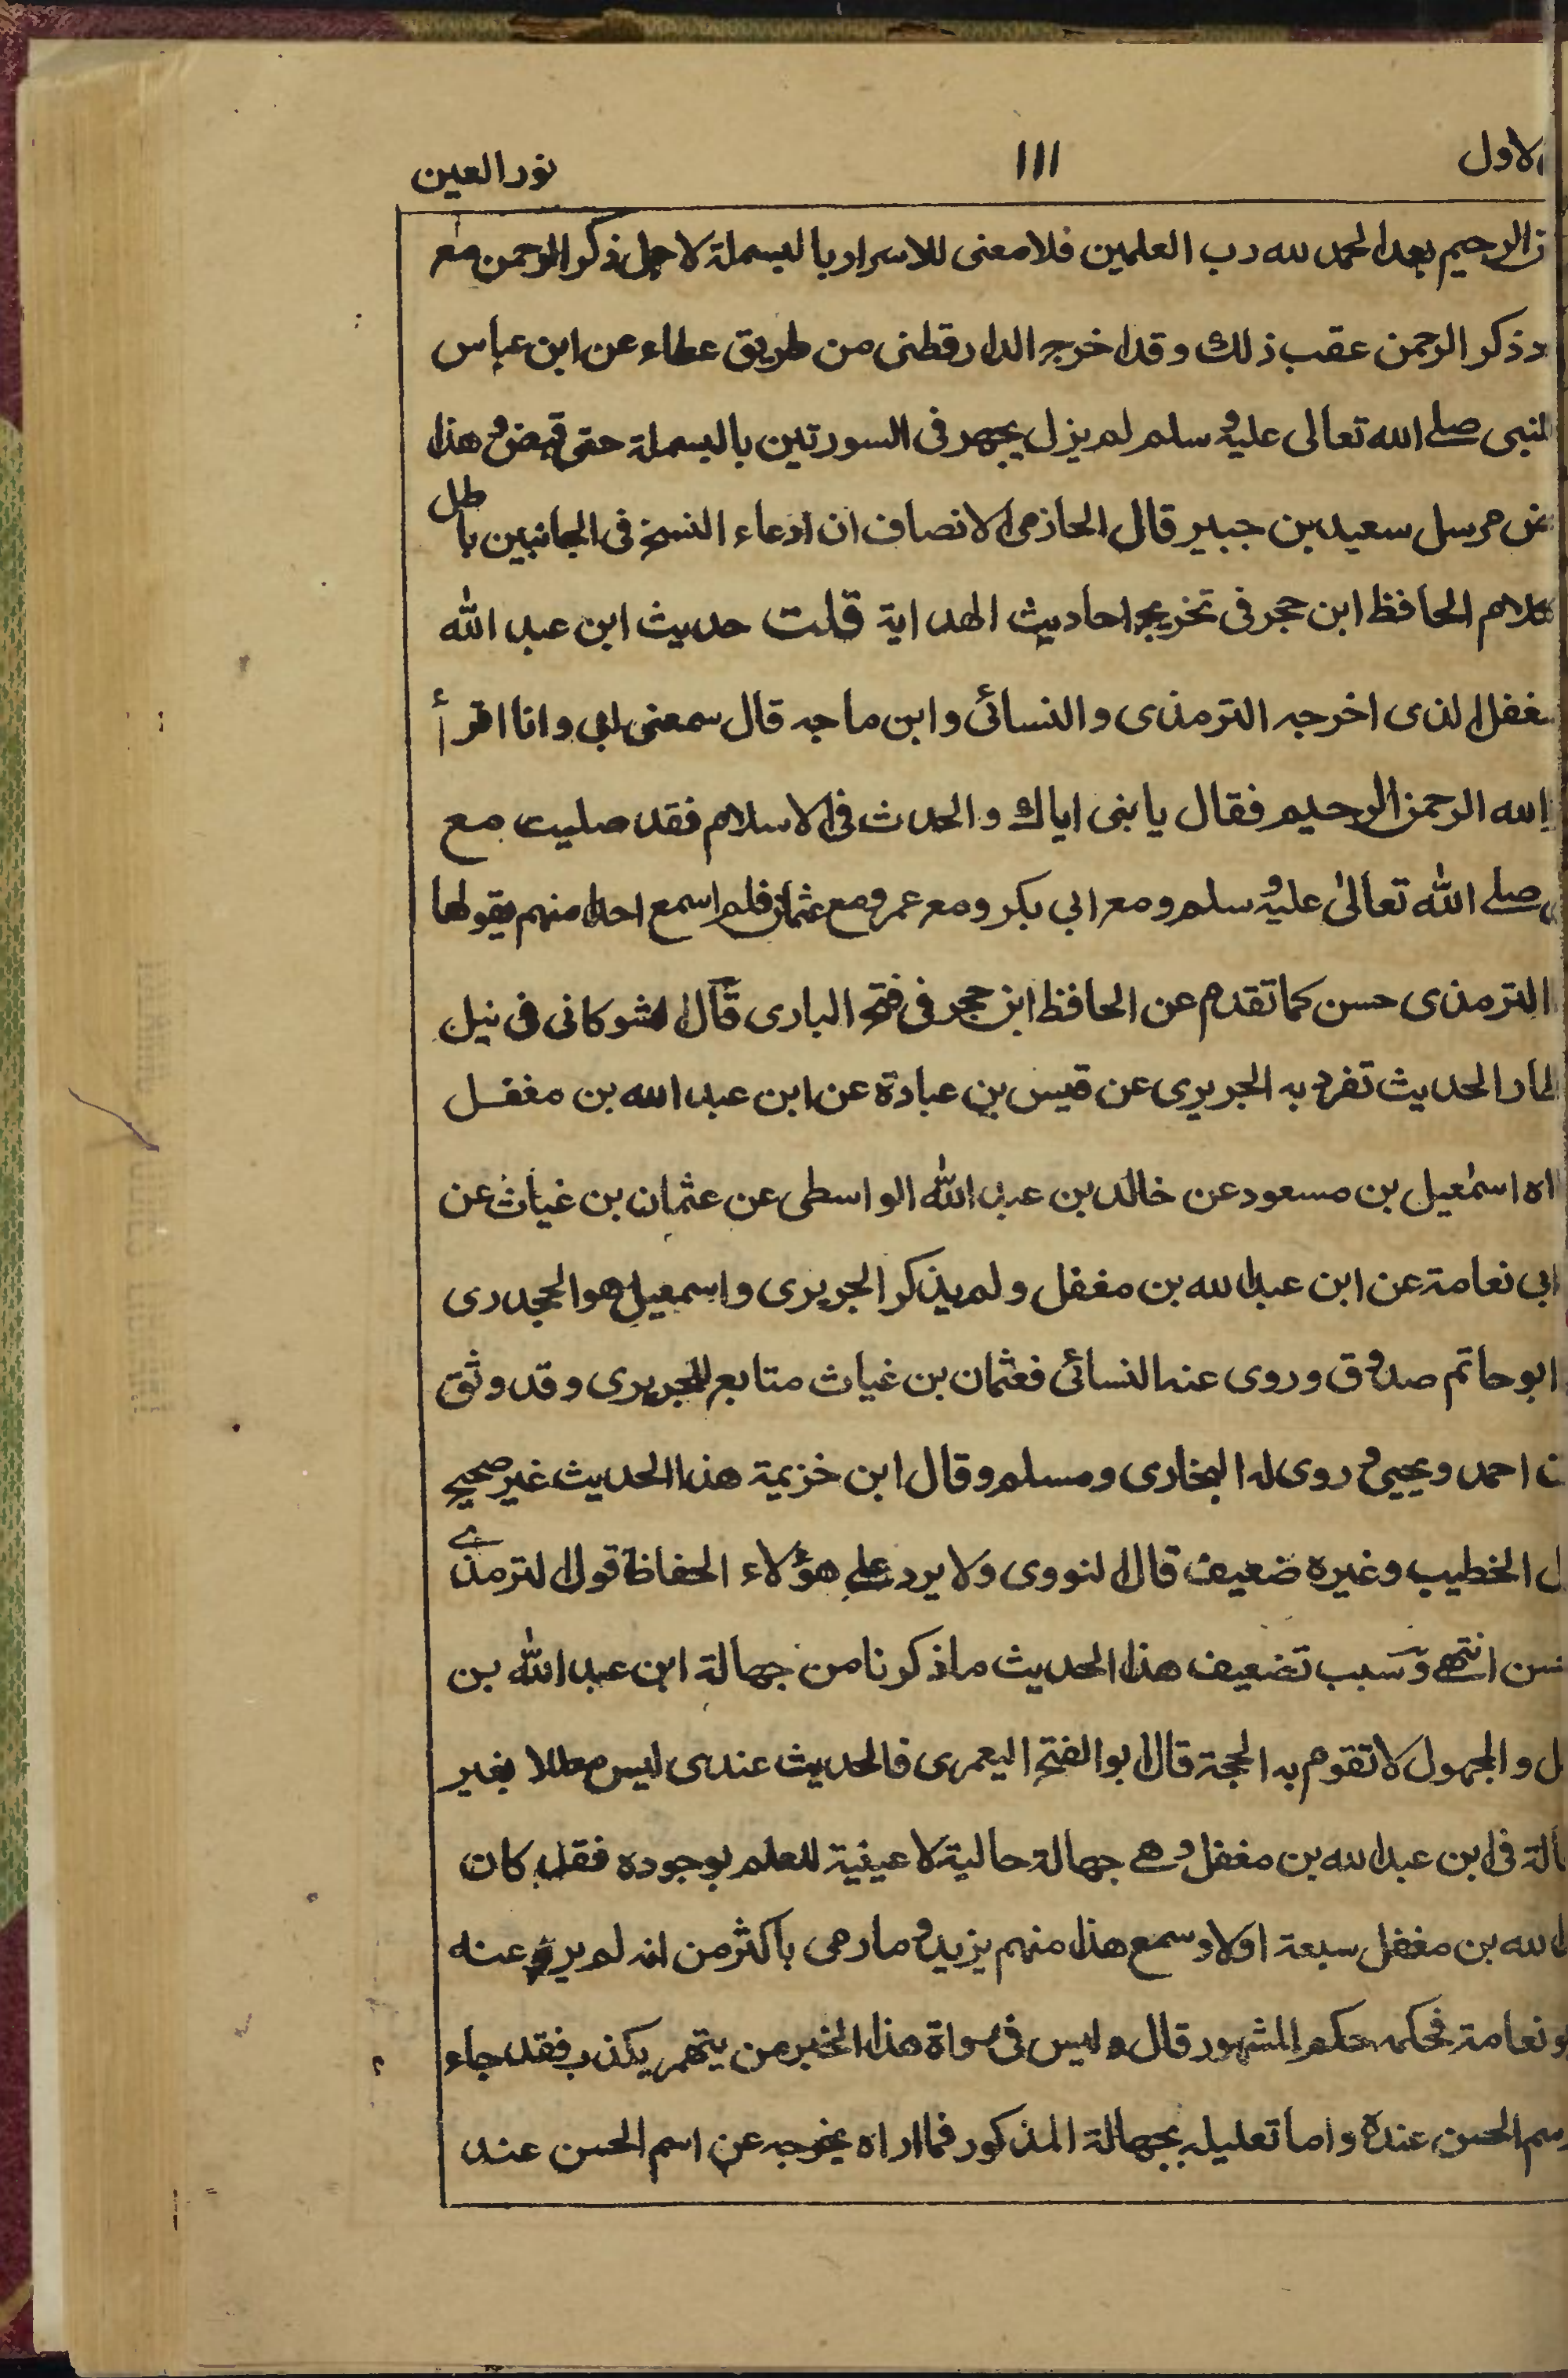 الاول ۱۱۱ نور العين
الرحيم بعد الحمد لله رب العلمين فلا معنى للاسرار بالبسملة لاجل ذكر الرحمن مع
ذكر الرحمن عقب ذلك وقد اخرجه الدارقطنى من طريق عطاء عن ابن عباس
النبى صلے الله تعالى عليه وسلم لم يزل يجهر فى السورتين بالبسملة حتى قبض وهذا
عن مرسل سعيد بن جبير قال الحازمى الانصاف ان ادعاء النسخ فى الجانبين باطل
كلام الحافظ ابن حجر فى تخريج احاديث الهداية قلت حديث ابن عبد الله
مغفل الذى اخرجه الترمذى والنسائى وابن ماجه قال سمعنى ابى وانا اقرأ
الله الرحمن الرحيم فقال يا بنى اياك والحدث فى الاسلام فقد صليت مع
صلے الله تعالىٰ عليه وسلم ومع ابي بكر ومع عمر ومع عثمان فلم اسمع احدا منهم يقولها
الترمذى حسن كما تقدم عن الحافظ ابن حجر فى فتح البارى قال الشوكانى فى نيل
الحديث تفرد به الجريرى عن قيس بن عبادة عن ابن عبد الله بن مغفل
اه اسمٰعيل بن مسعود عن خالد بن عبد الله الواسطى عن عثمان بن غياث عن
ابى نعامة عن ابن عبد الله بن مغفل ولم يذكر الجريرى واسمعيل هو الجحدرى
ابو حاتم صدوق وروى عنه النسائى فعثمان بن غياث متابع للجريرى وقد وثق
احمد ويحيى وروى له البخارى ومسلم وقال ابن خزيمة هذا الحديث غير صحيح
ل الخطيب وغيره ضعيف قال النووى ولا يرد على هؤلاء الحفاظ قول الترمذے
سن انتهى وسبب تضعيف هذا الحديث ما ذكرنا من جهالة ابن عبد الله بن
ل والمجهول لا تقوم به الحجة قال ابو الفتح اليعمرى فالحديث عندى ليس معللا بغير
الة فى ابن عبد الله بن مغفل وهے جهالة حالية لا عينية للعلم بوجوده فقد كان
الله بن مغفل سبعة اولاد سمع هذا منهم يزيد وما رمى باكثر من انه لم يرو عنه
و نعامة فحكمه حكم المشهور قال وليس فى رواة هذا الخبر من يتهم بكذب فقد جاء
رسم الحسن عنده واما تعليله بجهالة المذكور فما اراه يخرجه عن اسم الحسن عند